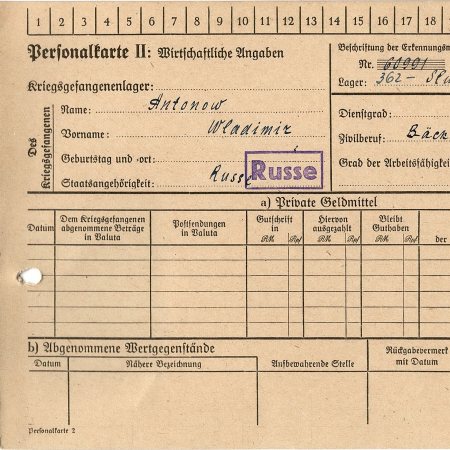 1 2 3 4 5 6 7 8 9 10 11 12 13 14 15 16 17 18
Personalkarte II: Wirtschaftliche Angaben
Beschriftung der Erkennungsm
Nr. 60991
Lager: 362-
Kriegsgefangenenlager:
Des Kriegsgefangenen
Name: Antonow
Vorname: Wladimir
Geburtstag und -ort:
Staatsangehörigkeit: Russe
Russe
Dienstgrad:
Zivilberuf: Bäck
Grad der Arbeitsfähigkeit
a) Private Geldmittel
Datum
Dem Kriegsgefangenen abgenommene Beträge in Valuta
Postsendungen in Valuta
Gutschrift in
RM. Rpf
Hiervon ausgezahlt
RM. Rpf
Bleibt Guthaben
RM. Rpf
der
b) Abgenommene Wertgegenstände
Datum
Nähere Bezeichnung
Aufbewahrende Stelle
Rückgabevermerk mit Datum
Personalkarte 2